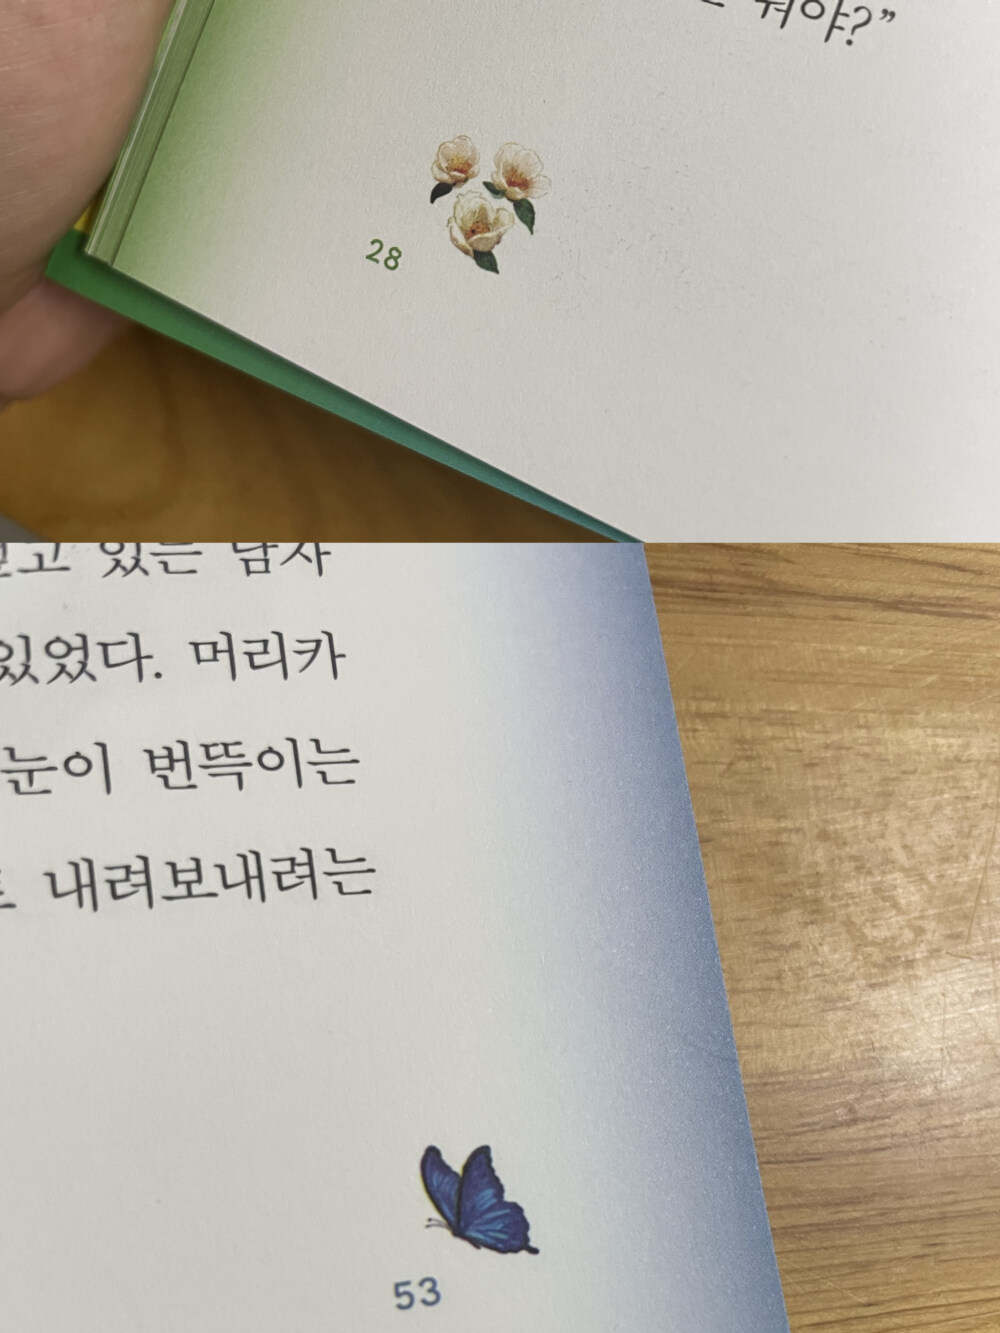 뭐야?”
28
있는 남자
있었다. 머리카
눈이 번뜩이는
내려보내려는
53